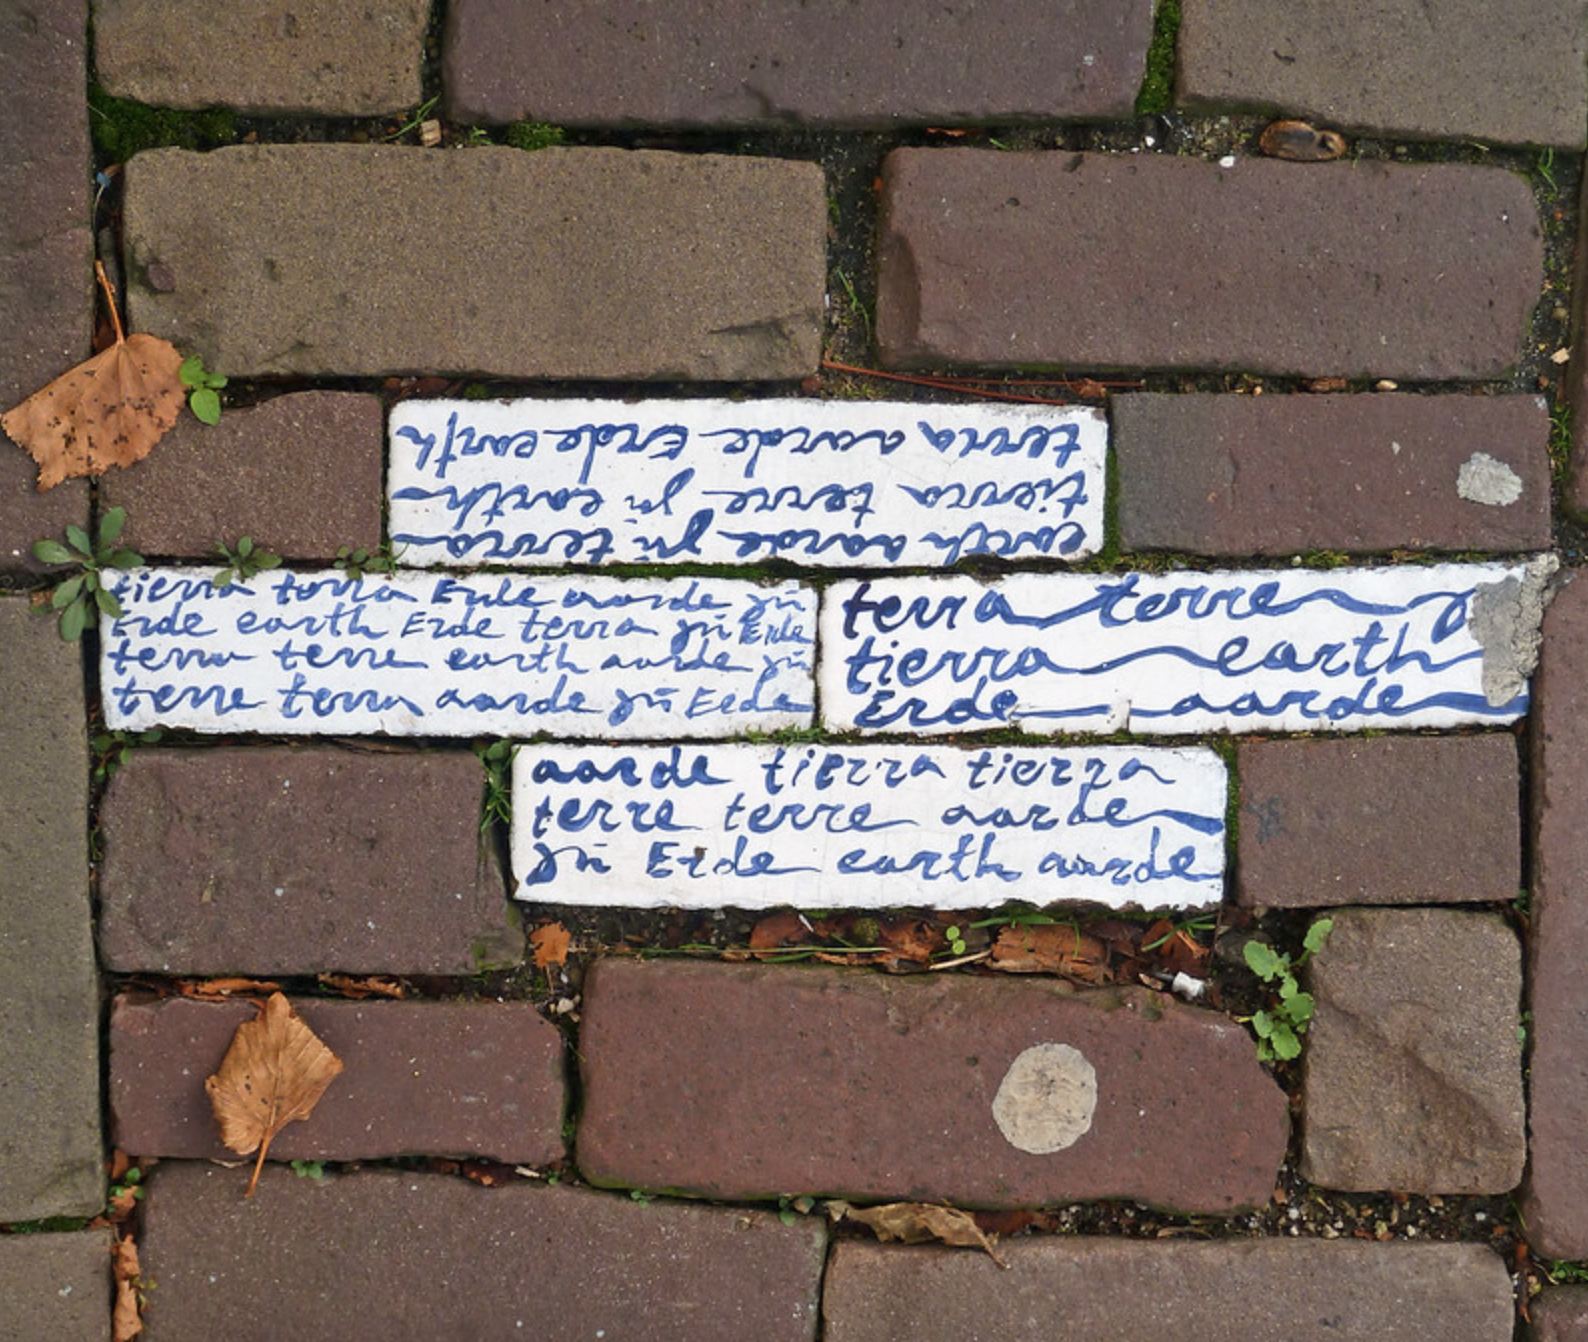 earth aarde γῆ terra
tierra terre γῆ earth
terra aarde Erde earth
tierra terra Erde aarde γῆ
Erde earth Erde terra γῆ Erde
terra terre earth aarde γῆ
terre terra aarde γῆ Erde
terra terre
tierra earth
Erde aarde
aarde tierra tierra
terre terre aarde
γῆ Erde earth aarde